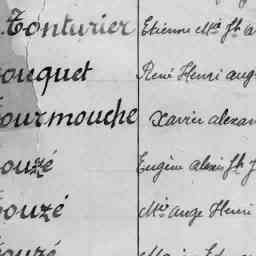 Tonturier Etienne Mie Jh
ouquet René Henri aug
ourmouche Xavier alexan
ouzé Eugène alexis Jh J
ouzé Mie ange Henri
ouzé